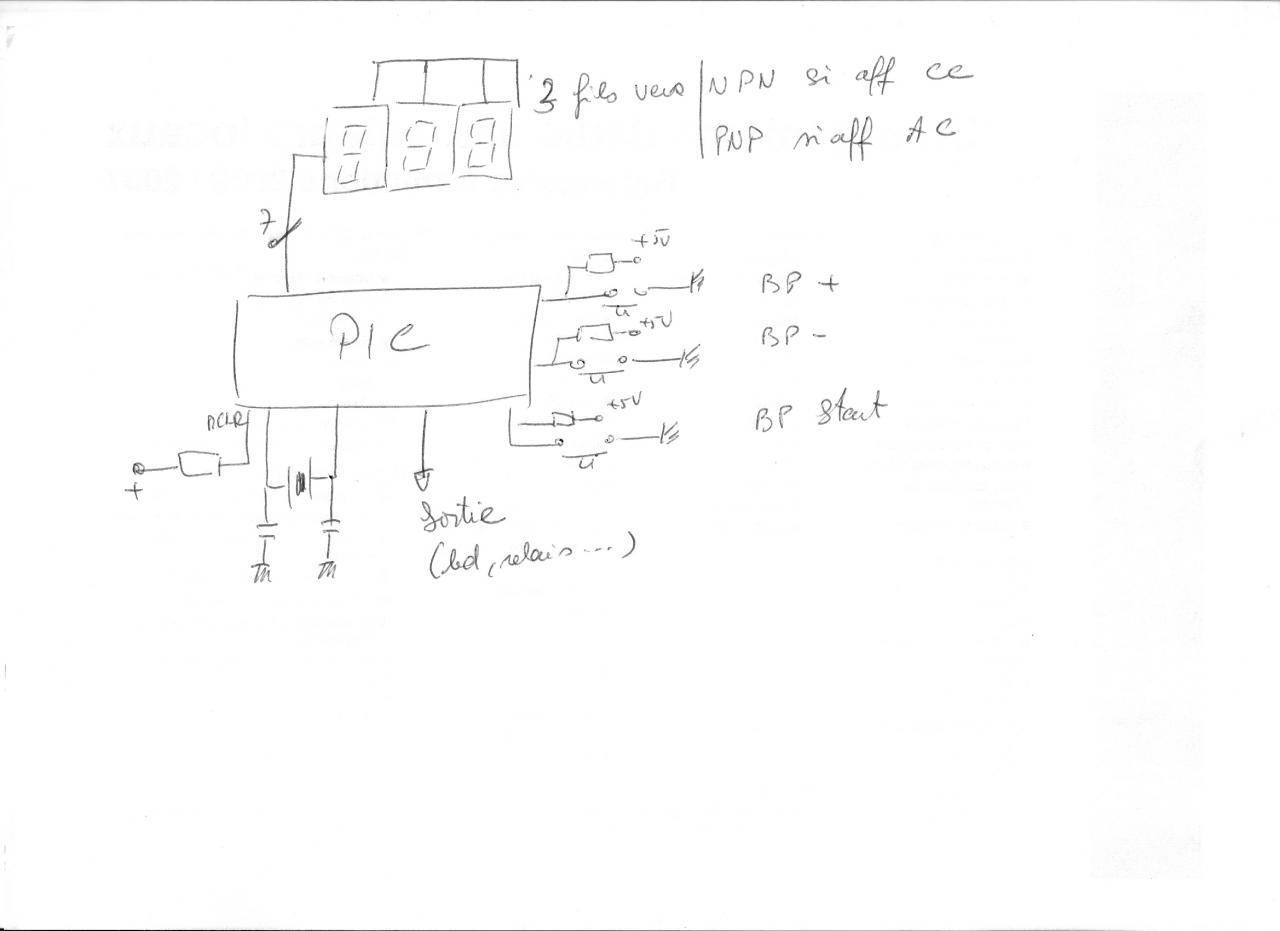 3 fils vers NPN si aff CC
PNP si aff AC
7
+5V
BP +
+5V
BP -
PIC
+5V
BP Start
MCLR
+
Sortie
(led, relais ...)